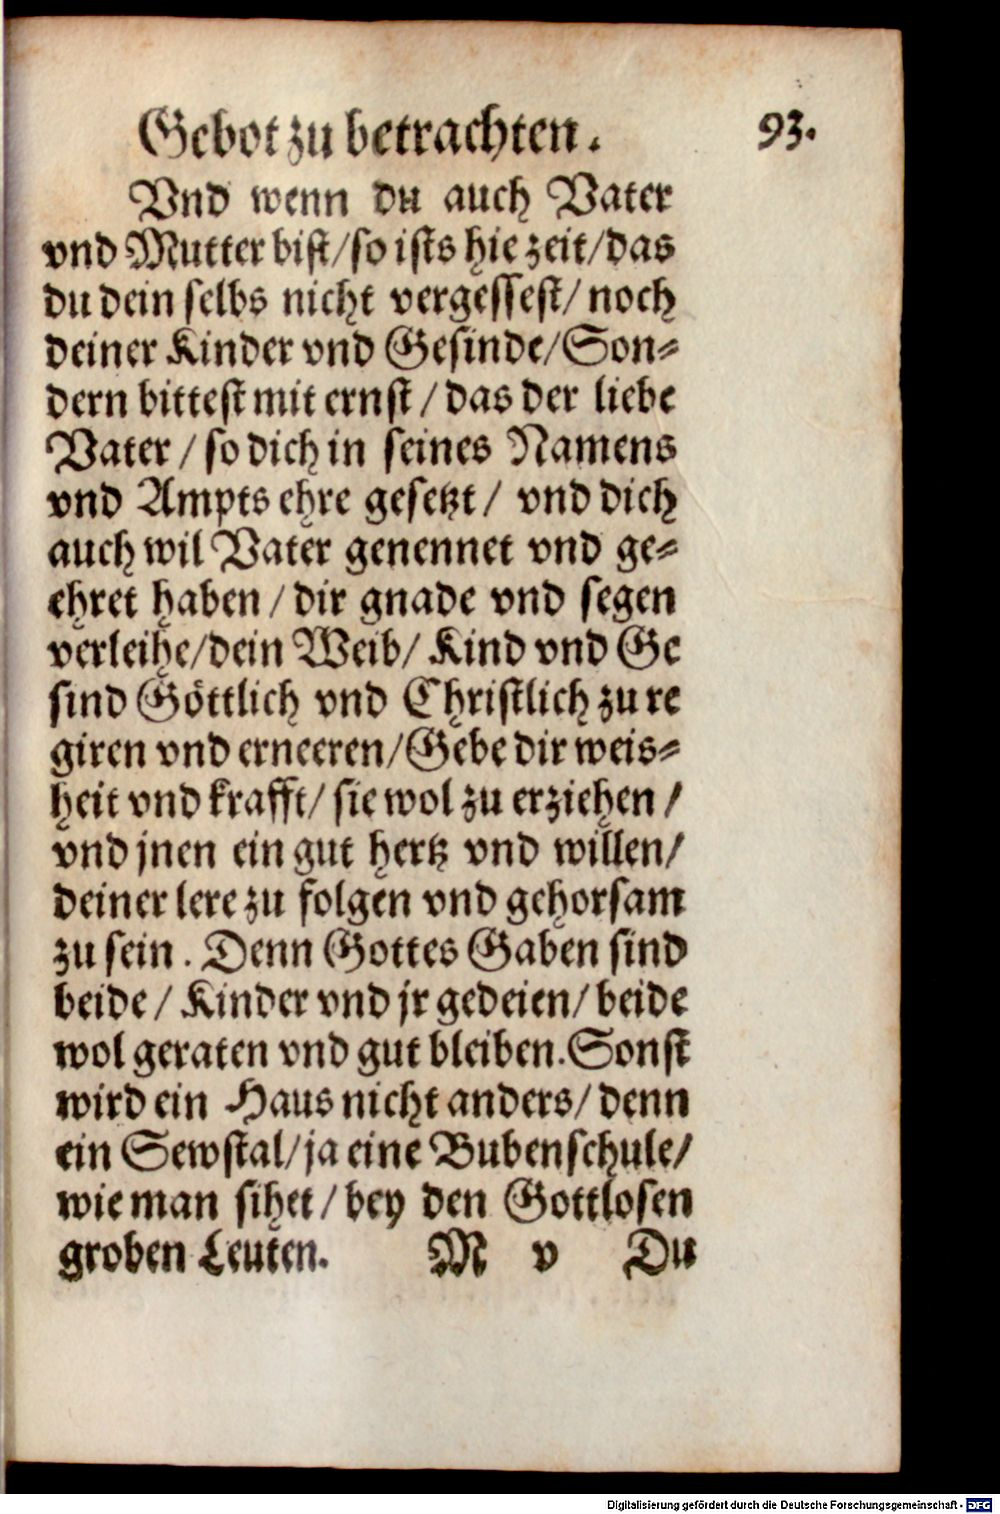 Gebot zu betrachten. 93.
Vnd wenn du auch Vater
vnd Mutter bist/so ists hie zeit/das
du dein selbs nicht vergessest/ noch
deiner Kinder vnd Gesinde/Son-
dern bittest mit ernst/ das der liebe
Vater/ so dich in seines Namens
vnd Ampts ehre gesetzt/ vnd dich
auch wil Vater genennet vnd ge-
ehret haben/ dir gnade vnd segen
verleihe/dein Weib/ Kind vnd Ge
sind Göttlich vnd Christlich zu re
giren vnd erneeren/Gebe dir weis-
heit vnd krafft/ sie wol zu erziehen/
vnd jnen ein gut hertz vnd willen/
deiner lere zu folgen vnd gehorsam
zu sein. Denn Gottes Gaben sind
beide/ Kinder vnd jr gedeien/ beide
wol geraten vnd gut bleiben. Sonst
wird ein Haus nicht anders/ denn
ein Sewstal/ja eine Bubenschule/
wie man sihet/ bey den Gottlosen
groben Leuten. M v Du
Digitalisierung gefördert durch die Deutsche Forschungsgemeinschaft - DFG